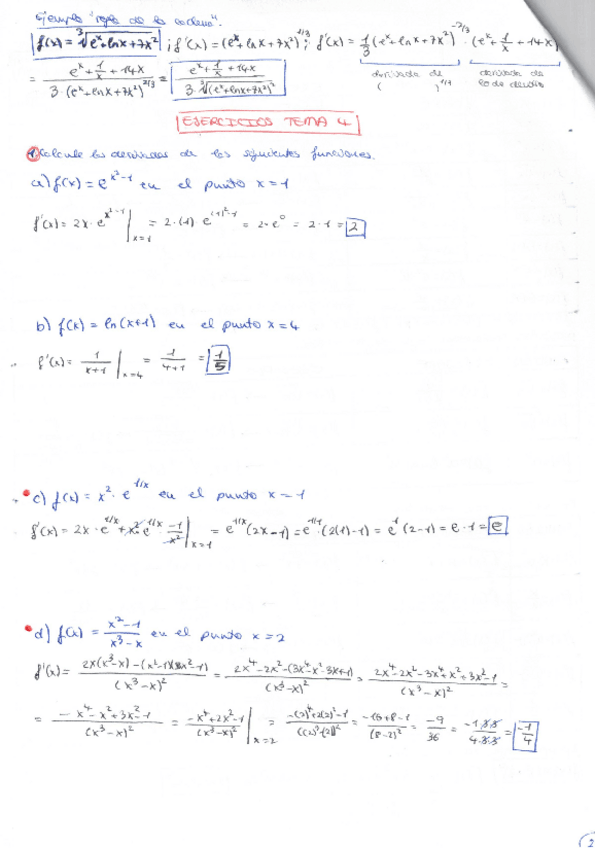 Ejemplo "regla de la cadena".
f(x) = ∛(eˣ+lnx+7x²) ; f'(x) = (eˣ+lnx+7x²)^(1/3) ; f'(x) = 1/3 (eˣ+lnx+7x²)^(-2/3) · (eˣ + 1/x + 14x)
derivada de ( )^(1/3) derivada de lo de dentro
= (eˣ + 1/x + 14x) / (3·(eˣ+lnx+7x²)^(2/3)) = (eˣ + 1/x + 14x) / (3·∛((eˣ+lnx+7x²)²))
EJERCICIOS TEMA 4
1. Calcule las derivadas de las siguientes funciones.
a) f(x) = e^(x²-1) en el punto x=1
f'(x) = 2x·e^(x²-1) |x=1 = 2·(1)·e^((1)²-1) = 2·e⁰ = 2·1 = 2
b) f(x) = ln(x+1) en el punto x=4
f'(x) = 1/(x+1) |x=4 = 1/(4+1) = 1/5
c) f(x) = x²·e^(1/x) en el punto x=1
f'(x) = 2x·e^(1/x) + x²·e^(1/x)·(-1/x²) |x=1 = e^(1/x)(2x-1) = e^(1/1)·(2(1)-1) = e¹(2-1) = e·1 = e
d) f(x) = (x²-1)/(x³-x) en el punto x=2
f'(x) = (2x(x³-x)-(x²-1)(3x²-1))/(x³-x)² = (2x⁴-2x²-(3x⁴-x²-3x²+1))/(x³-x)² = (2x⁴-2x²-3x⁴+x²+3x²-1)/(x³-x)² =
= (-x⁴-x²+3x²-1)/(x³-x)² = (-x⁴+2x²-1)/(x³-x)² |x=2 = (-(2)⁴+2(2)²-1)/((2)³-(2))² = (-16+8-1)/(8-2)² = -9/36 = (-1·3·3)/(4·3·3) = -1/4
2